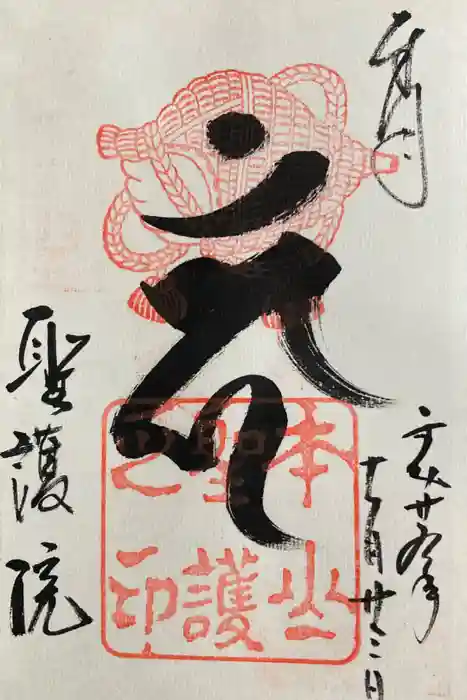 奉拝
平成廿九年
月廿三日
聖護院
本山
聖護
之印